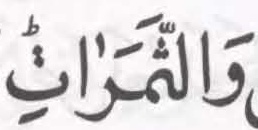 وَالثَّمَرٰاتِؕ